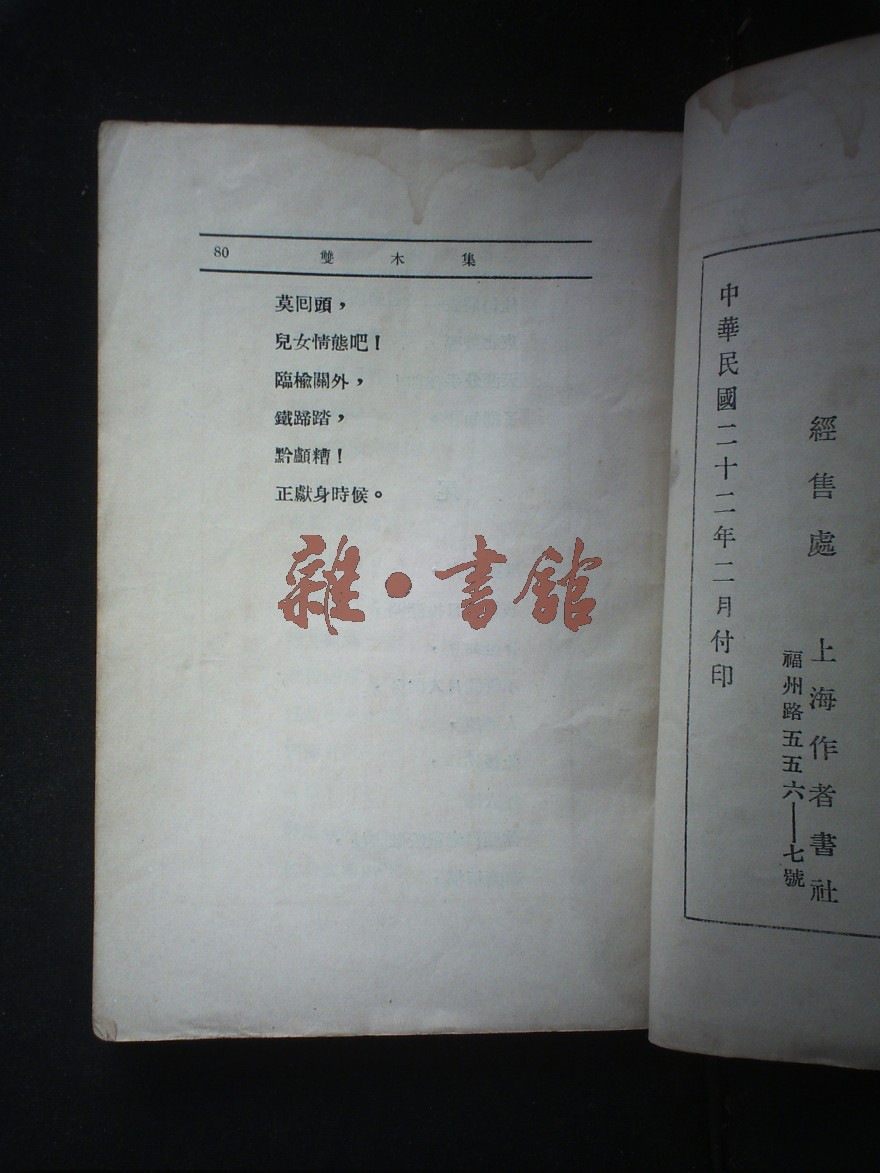 80
雙木集
莫囘頭，
兒女情態吧！
臨榆關外，
鐵蹄踏，
黔顱糟！
正獻身時候。
雜·書館
經售處 上海作者書社
福州路五五六——七號
中華民國二十二年二月付印